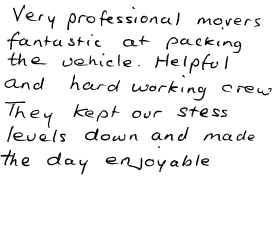 Very professional movers
fantastic at packing
the vehicle. Helpful
and hard working crew
They kept our stess
levels down and made
the day enjoyable